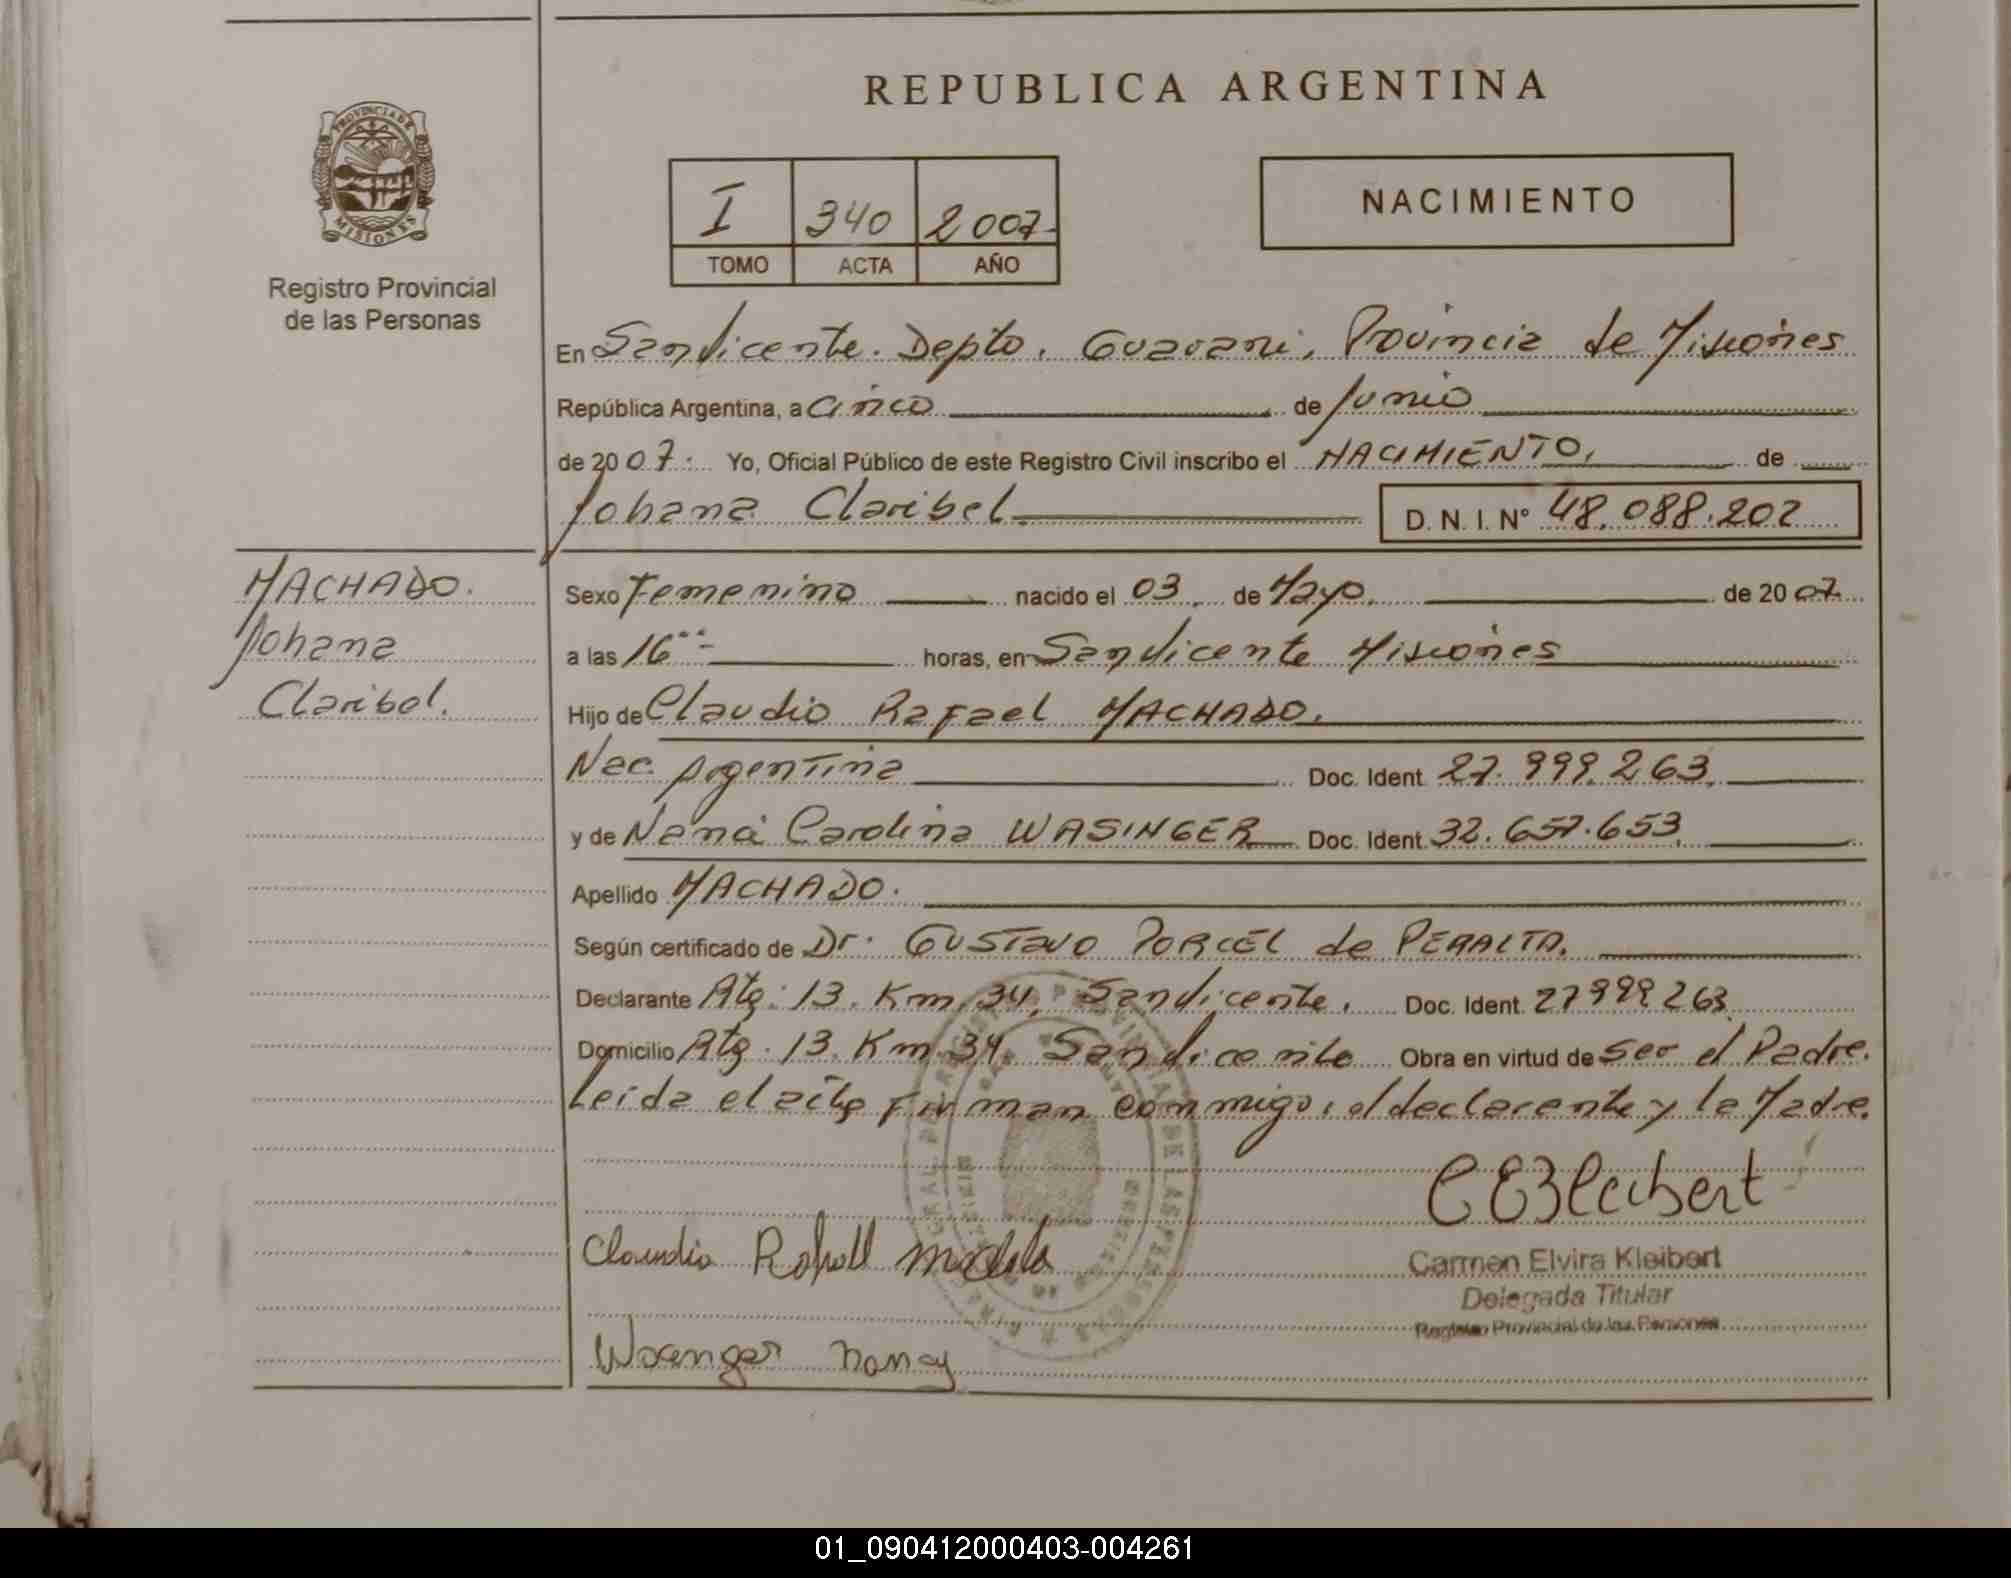 REPUBLICA ARGENTINA
PROVINCIA DE
MISIONES
Registro Provincial
de las Personas
I 340 2007
TOMO ACTA AÑO
NACIMIENTO
En San Vicente. Depto. Guarani, Provincia de Misiones
República Argentina, a cinco de Junio
de 2007. Yo, Oficial Público de este Registro Civil inscribo el NACIMIENTO, de
Johana Claribel D. N. I. N° 48.088.202
MACHADO.
Johana
Claribel.
Sexo Femenino nacido el 03 de Mayo de 2007
a las 16 horas, en San Vicente Misiones
Hijo de Claudio Rafael MACHADO.
Nac. Argentina Doc. Ident. 27.999.263.
y de Nanci Carolina WASINGER Doc. Ident. 32.657.653
Apellido MACHADO.
Según certificado de Dr. GUSTAVO PORCEL de PERALTA.
Declarante Rta: 13. Km. 34, San Vicente. Doc. Ident. 27999263
Domicilio Rta. 13. Km. 34. San Vicente Obra en virtud de Ser el Padre.
Leída el acta firman conmigo, el declarante y la Madre.
CEKleibert
Claudio Rafael Machado
Carmen Elvira Kleibert
Delegada Titular
Registro Provincial de las Personas
Wasinger nancy
01_090412000403-004261